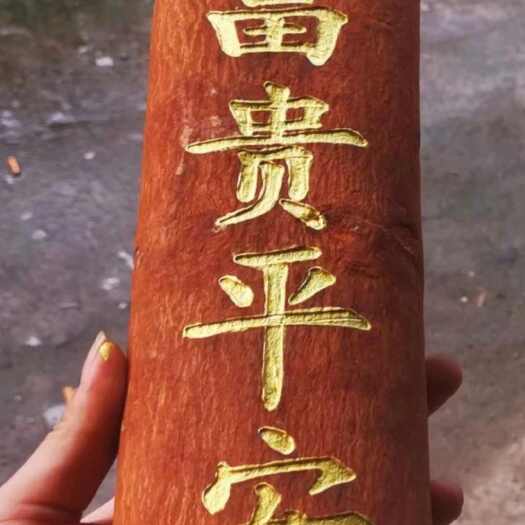 富贵平安